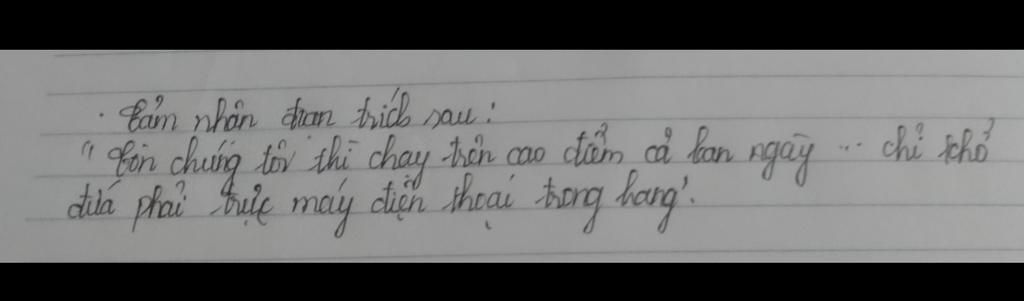 . Cảm nhận đoạn trích sau:
"Còn chúng tôi thì chạy trên cao điểm cả ban ngày ... chỉ khổ
đứa phải trực máy điện thoại trong hang".